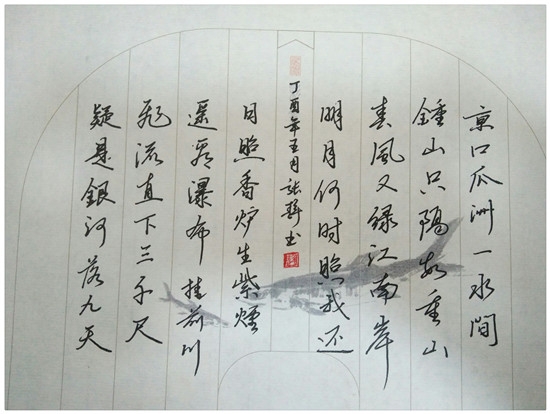 京口瓜洲一水間
鍾山只隔数重山
春風又绿江南岸
明月何时照我还
丁酉年五月张书
日照香炉生紫煙
遥看瀑布挂前川
飛流直下三千尺
疑是銀河落九天